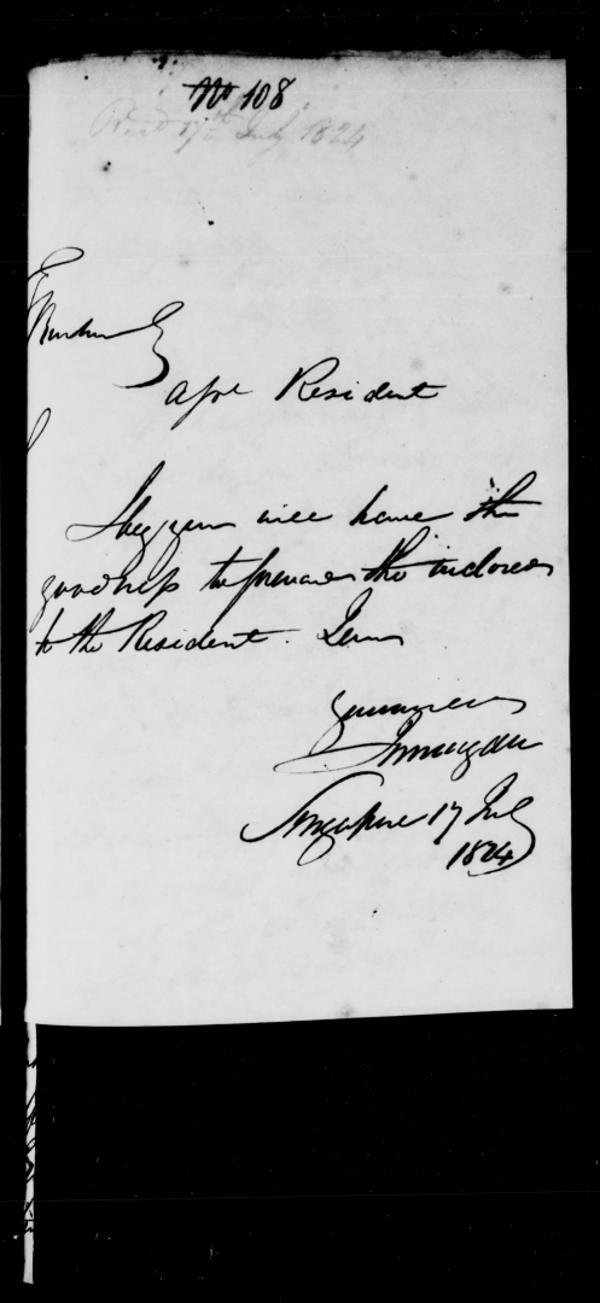 No 108
Recd 17th July 1824
Resident
I beg you will have the
goodness to forward the inclosed
to the Resident. I am
Singapore 17 July
1824